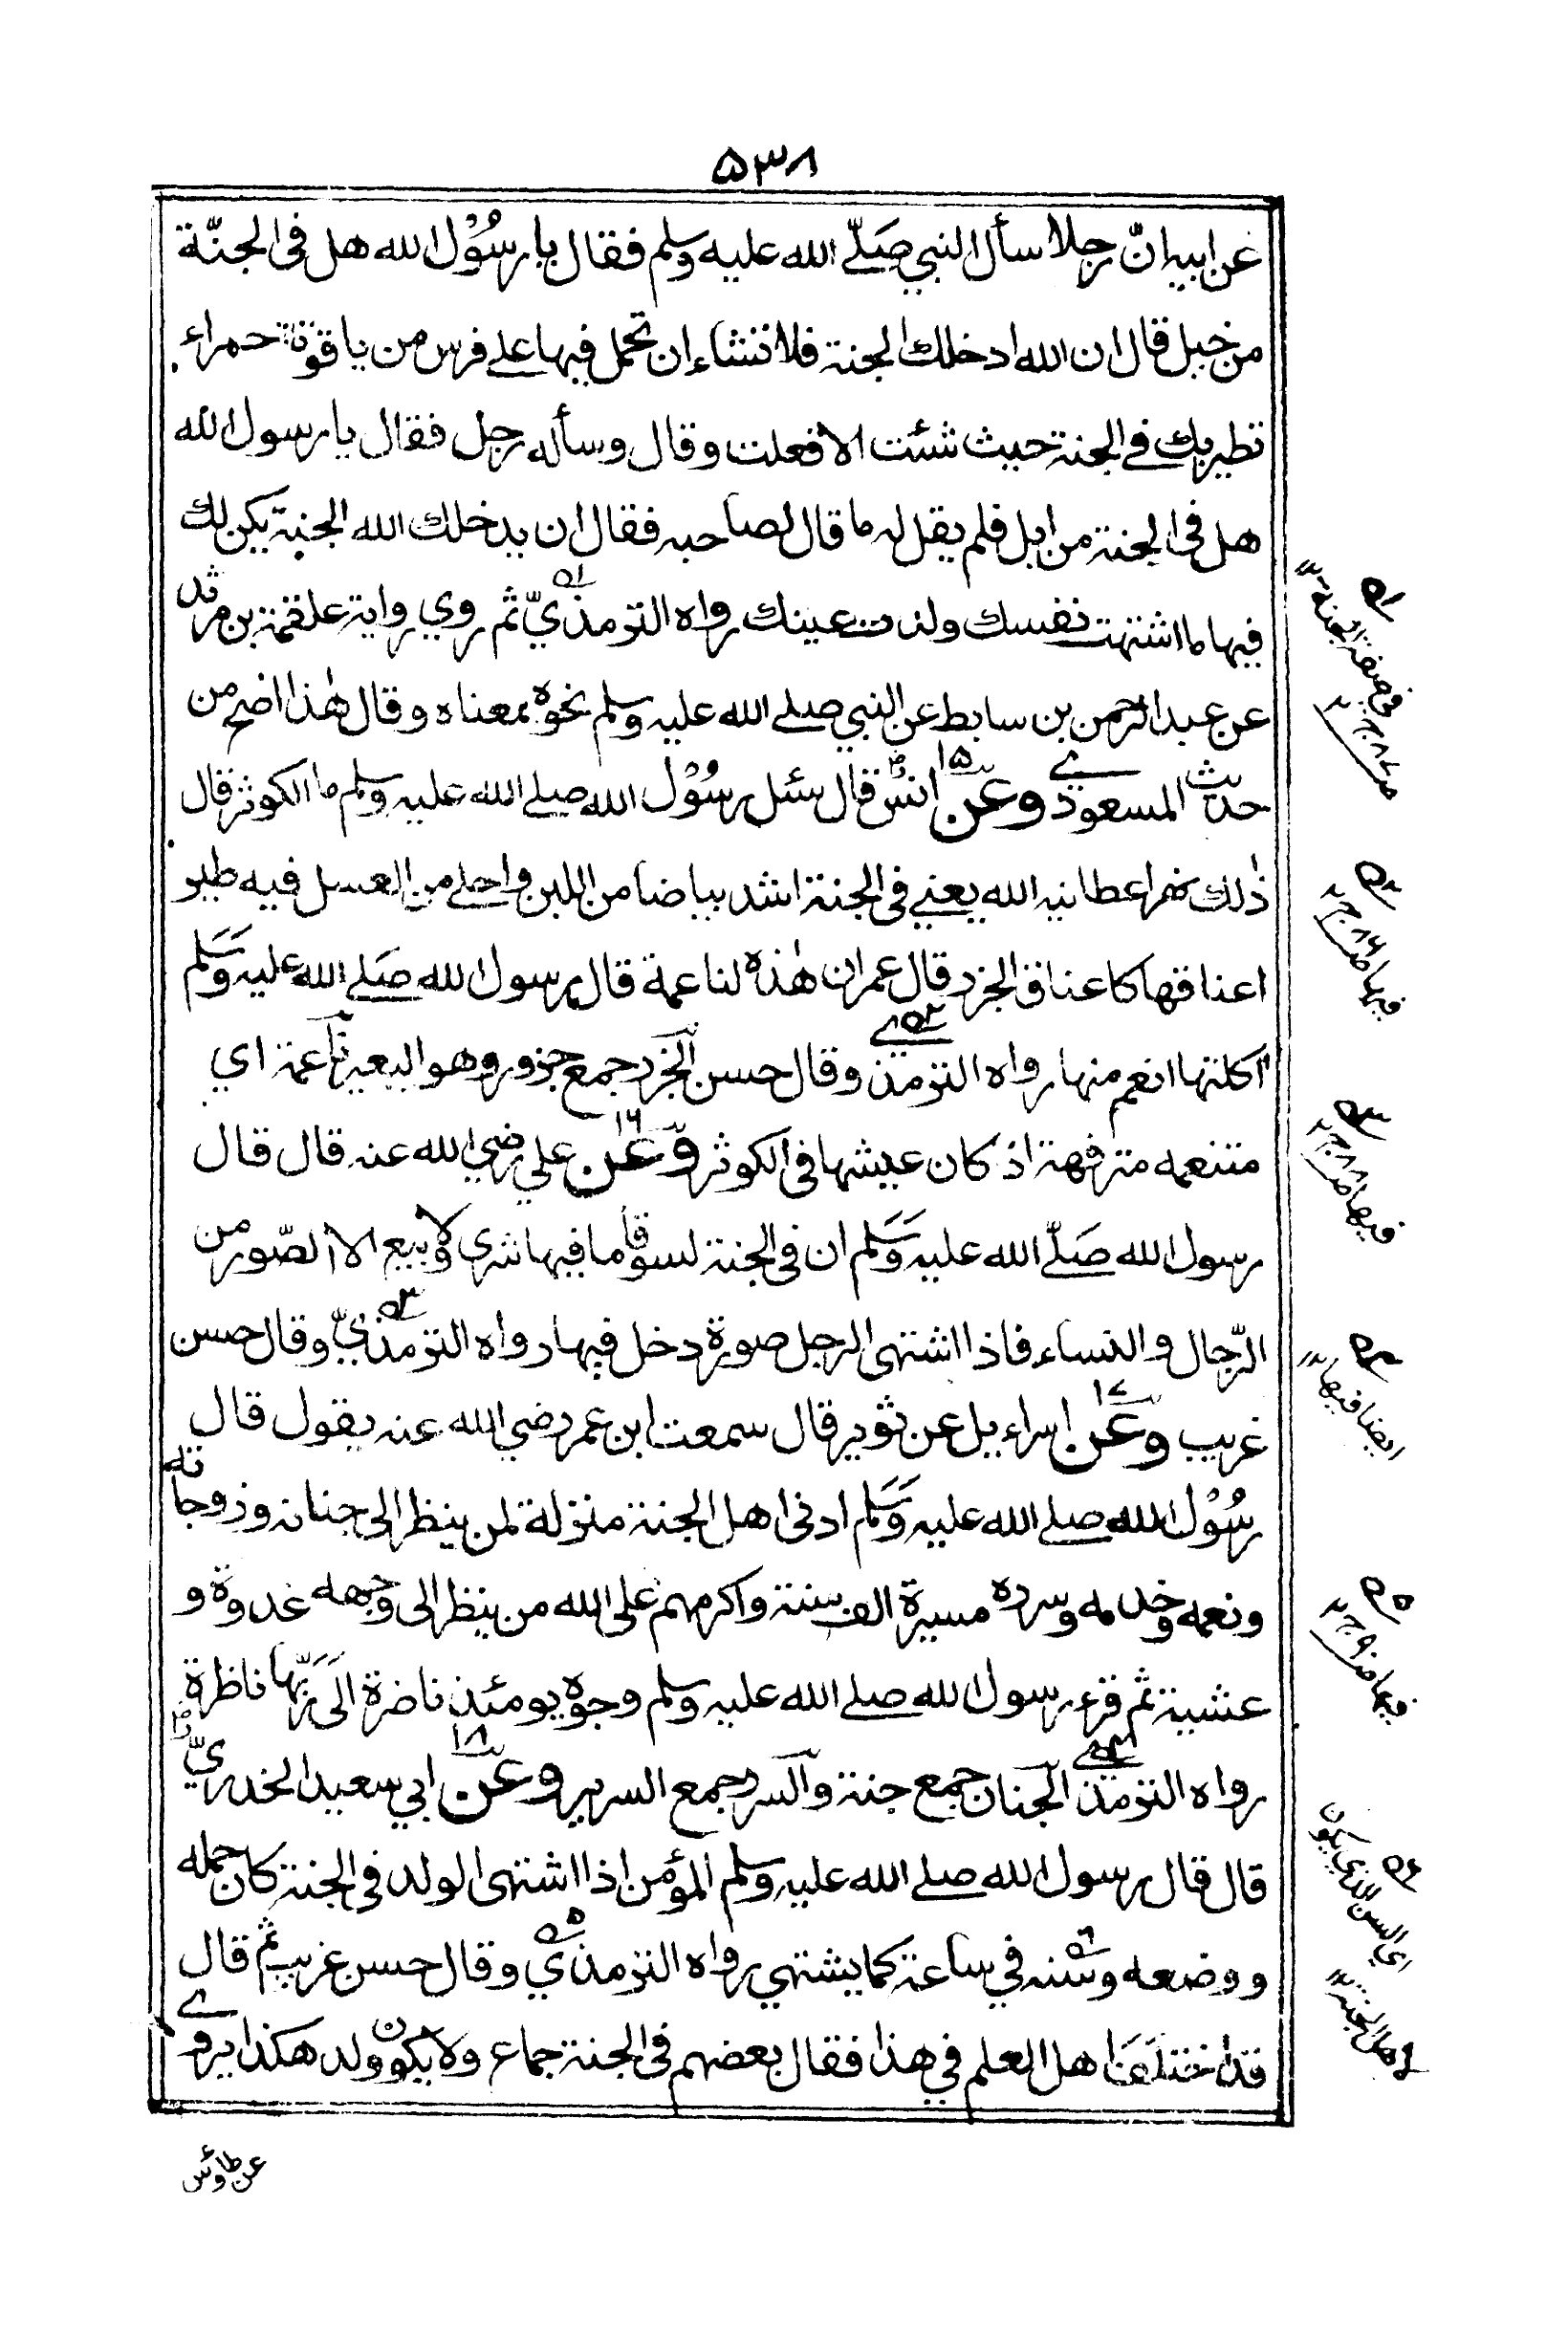 ۵۳۸
عن ابيه ان رجلا سأل النبي صَلّے الله عليه وسلم فقال يا رسُوْل الله هل فى الجنّة
من خيل قال ان الله ادخلك الجنة فلا تشاء ان تحمل فيها على فرس من ياقوتة حمراء
تطير بك فى الجنة حيث شئت الا فعلت وقال وسأله رجل فقال يا رسول الله
هل فى الجنة من ابل فلم يقل له ما قال لصاحبه فقال ان يدخلك الله الجنة يكن لك
فيها ما اشتهت نفسك ولذت عينك رواه الترمذيّ ثم روي رواية علقمة بن مرثد
عن عبد الرحمن بن سابط عن النبي صلے الله عليه وسلم نحوه بمعناه وقال هٰذا اصح من
حديث المسعودي وعن ۱۵ انس قال سئل رسُوْل الله صلے الله عليه وسلم ما الكوثر قال
ذٰلك نهر اعطانيه الله يعني فى الجنة اشد بياضا من اللبن واحلے من العسل فيه طير
اعناقها كاعناق الجزر قال عمر ان هٰذه لناعمة قال رسول الله صَلے الله عليه وَسَلم
اكلتها انعم منها رواه الترمذي وقال حسن الجزر جمع جزور وهو البعير ناعمة اي
متنعمه مترفهة اذ كان عيشها فى الكوثر وعن ۱۶ علي رضي الله عنه قال قال
رسول الله صَلّے الله عليه وَسَلم ان فى الجنة لسوقا ما فيها شرى ولا بيع الا الصّور من
الرّجال والنساء فاذا اشتهى الرجل صورة دخل فيها رواه الترمذيّ وقال حسن
غريب وعن ۱۷ اسراءيل عن ثوير قال سمعت ابن عمر رضي الله عنه يقول قال
رسُوْل الله صلے الله عليه وَسَلم ادنى اهل الجنة منزلة لمن ينظر الى جنانه وزوجاته
ونعمه وخدمه وسرره مسيرة الف سنة واكرمهم على الله من ينظر الى وجهه غدوة و
عشية ثم قرء رسول الله صلے الله عليه وسلم وجوه يومئذ ناضرة الَى رَبّها ناظرة
رواه الترمذي الجنان جمع جنة والسرر جمع السرير وعن ۱۸ ابي سعيد الخدريّ
قال قال رسول الله صلے الله عليه وسلم المؤمن اذا اشتهى الولد فى الجنة كان حمله
ووضعه وسنه في ساعة كما يشتهي رواه الترمذي وقال حسن غريب ثم قال
قد اختلف اهل العلم في هذا فقال بعضهم فى الجنة جماع ولا يكون ولد هكذا يروے
عن طاؤس
۱ه فى صفة الجنة
ص ۸۷ ج ۲
۲ه فيها ص ۸۶ ج ۲
۳ه فيها ص ۸۸ ج ۲
۴ه ايضا فيها ۱۲
۵ه فيها ص ۹۰ ج ۲
۶ه اي السن الذي يكون
لاهل الجنة ۱۲